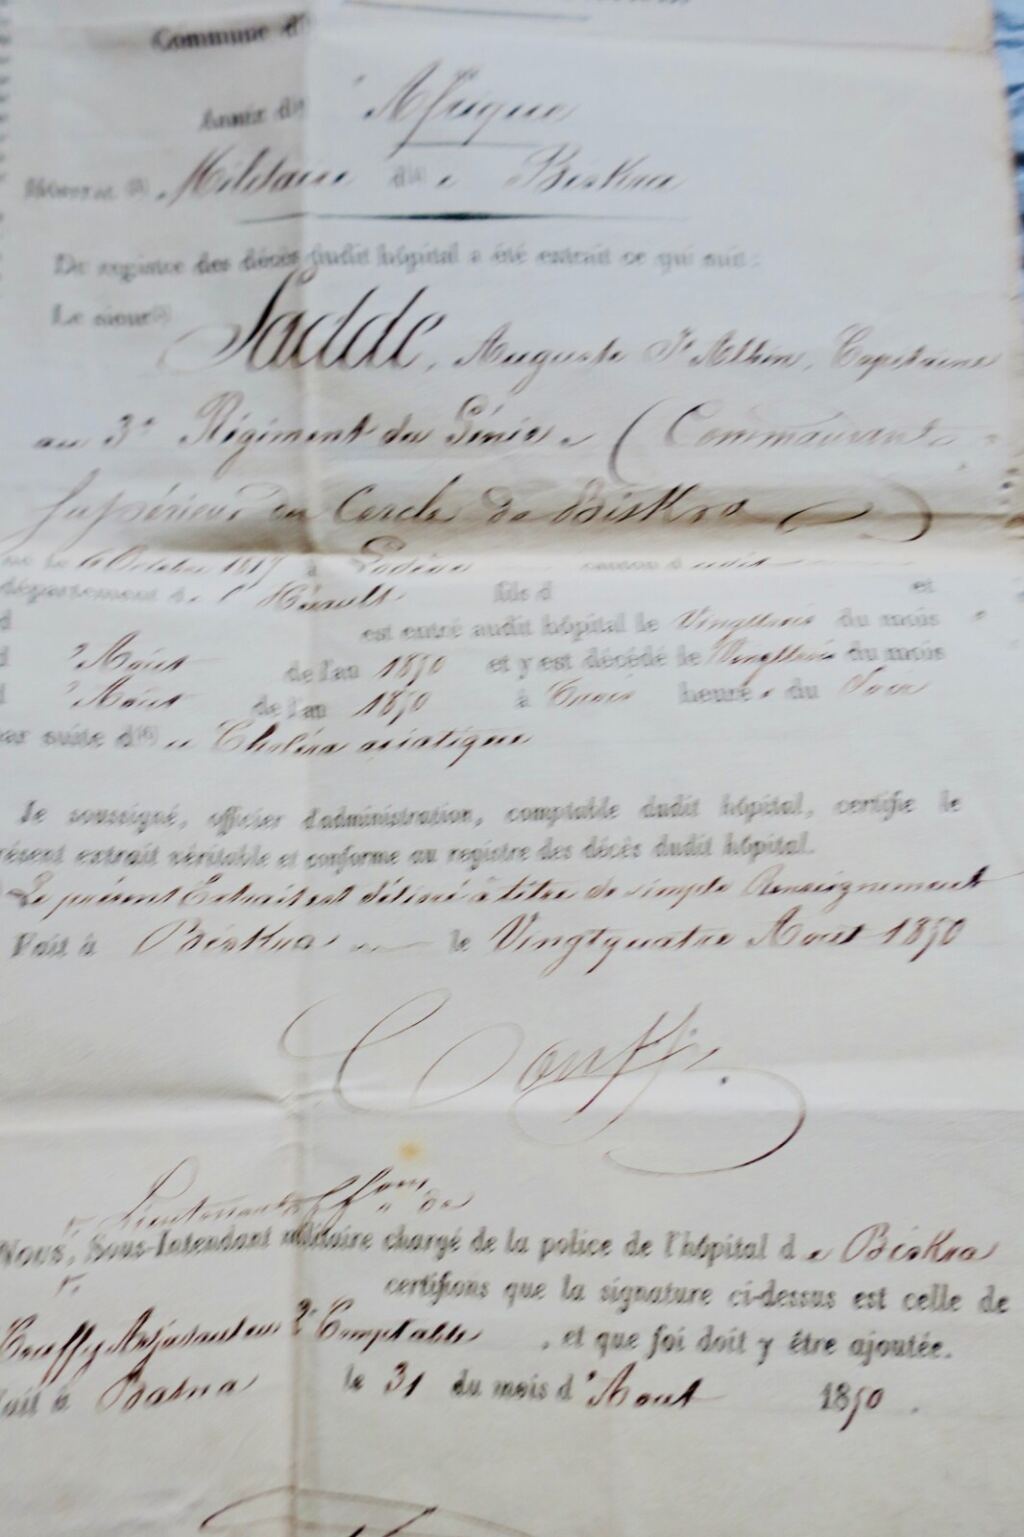 Commune d
Armée d' Afrique
Hôpital Militaire de Biskra
Du registre des décès dudit hôpital a été extrait ce qui suit:
Le sieur Sadde, Auguste Capitaine
au 3e Régiment du Génie (Commandant
Supérieur du Cercle de Biskra)
né le Octobre à canton dudit
département de l'Hérault fils d et
d est entré audit hôpital le Vingttrois du mois
d'Août de l'an 1850 et y est décédé le Vingttrois du mois
d'Août de l'an 1850 à heures du Soir
par suite de Choléra asiatique
Je soussigné, officier d'administration, comptable dudit hôpital, certifie le
présent extrait véritable et conforme au registre des décès dudit hôpital.
Le présent Extrait est délivré à titre de simple Renseignement
Fait à Biskra le Vingtquatre Août 1850
Lieutenant ffons de
Nous, Sous-Intendant militaire chargé de la police de l'hôpital de Biskra
certifions que la signature ci-dessus est celle de
Comptable, et que foi doit y être ajoutée.
Fait à Batna le 31 du mois d'Aout 1850.